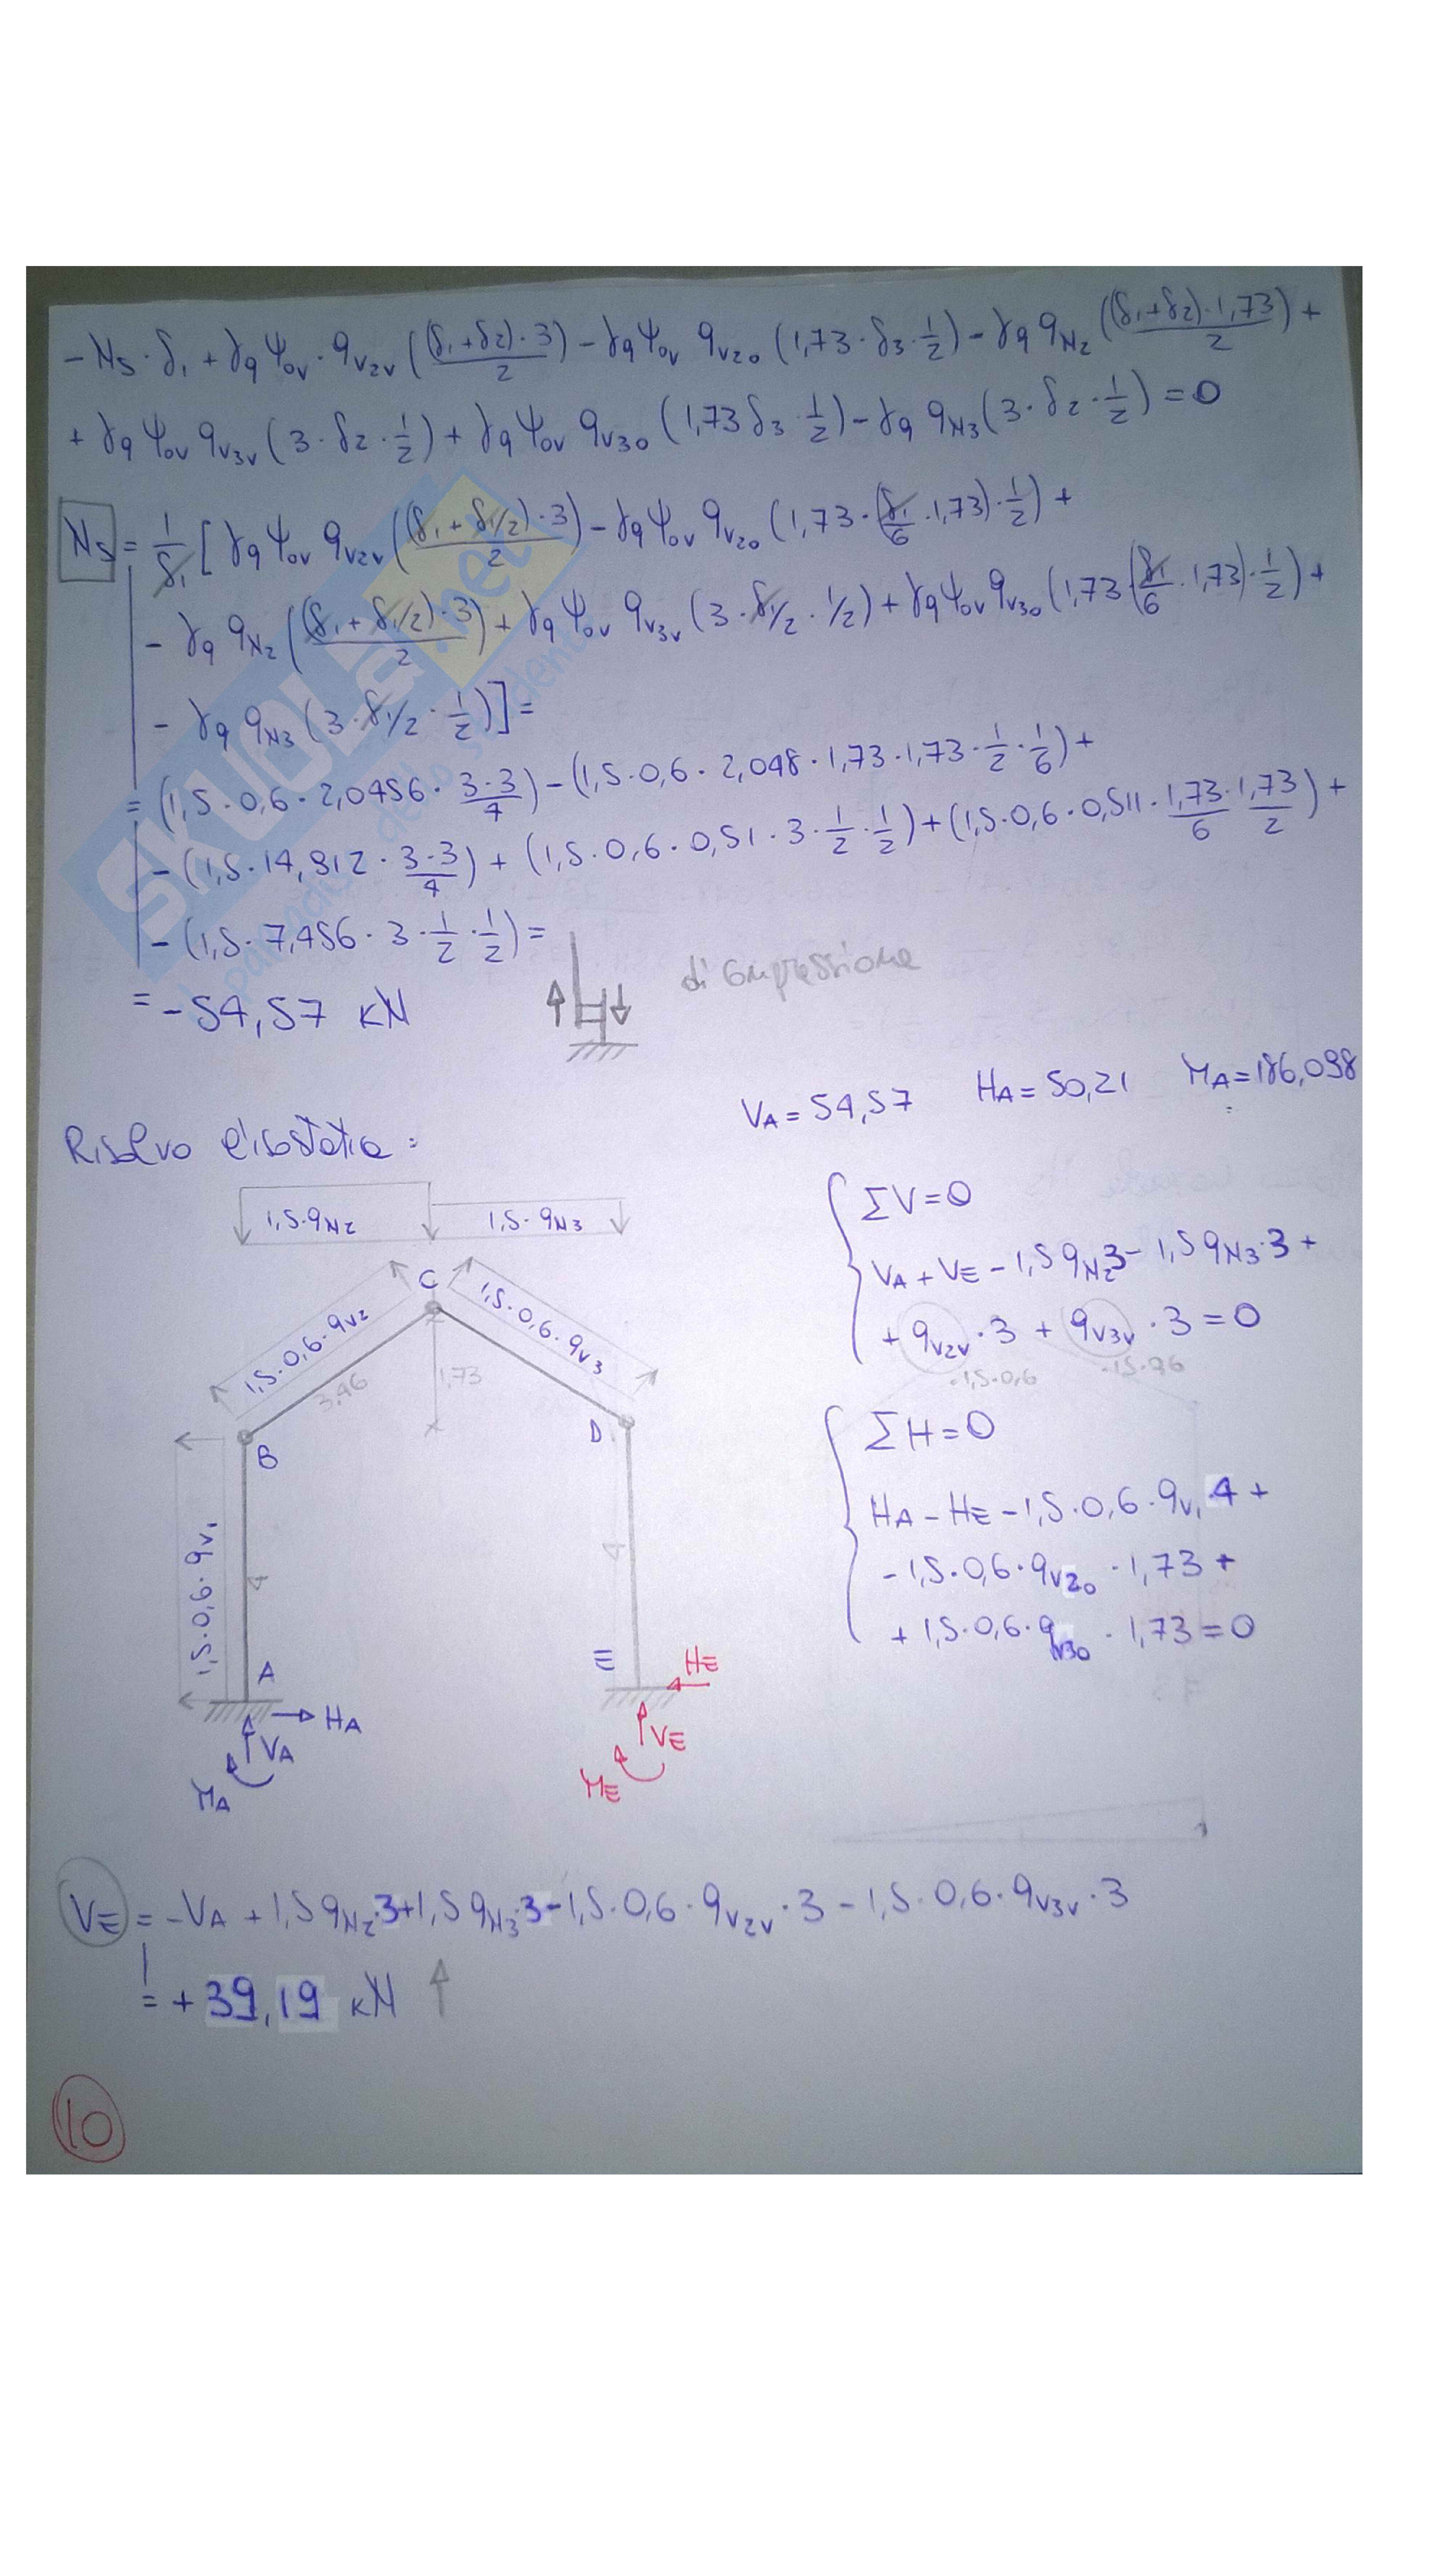 - NS · δ1 + γq ψ0v · qv2v ((δ1+δ2)·3)/2 - γq ψ0v qv2o (1,73 · δ3 · 1/2) - γq qN2 ((δ1+δ2)·1,73)/2 +
+ γq ψ0v qv3v (3 · δ2 · 1/2) + γq ψ0v qv3o (1,73 δ3 · 1/2) - γq qN3 (3 · δ2 · 1/2) = 0
NS = 1/δ1 [ γq ψ0v qv2v ((δ1 + δ1/2)·3)/2 - γq ψ0v qv2o (1,73 · (δ1/6 · 1,73) · 1/2) +
- γq qN2 ((δ1 + δ1/2)·3)/2 + γq ψ0v qv3v (3 · δ1/2 · 1/2) + γq ψ0v qv3o (1,73 (δ1/6 · 1,73) · 1/2) +
- γq qN3 (3 · δ1/2 · 1/2) ] =
= (1,5 · 0,6 · 2,0456 · 3·3/4) - (1,5 · 0,6 · 2,048 · 1,73 · 1,73 · 1/2 · 1/6) +
- (1,5 · 14,912 · 3·3/4) + (1,5 · 0,6 · 0,51 · 3 · 1/2 · 1/2) + (1,5 · 0,6 · 0,511 · 1,73/6 · 1,73/2) +
- (1,5 · 7,456 · 3 · 1/2 · 1/2) =
= - 54,57 kN
di compressione
VA = 54,57 HA = 50,21 MA = 186,098
Risolvo l'isostatica :
1,5·qN2 1,5·qN3
1,5·0,6·qv2
1,5·0,6·qv3
C
3,46
1,73
B
D
1,5·0,6·qv1
4
4
A
E
HA
VA
MA
HE
VE
ME
ΣV=0
VA + VE - 1,5 qN2 3 - 1,5 qN3·3 +
+ qv2v · 3 + qv3v · 3 = 0
·1,5·0,6 ·1,5·0,6
ΣH=0
HA - HE - 1,5·0,6·qv1 4 +
- 1,5·0,6·qv2o · 1,73 +
+ 1,5·0,6·qv3o · 1,73 = 0
VE = - VA + 1,5 qN2·3 + 1,5 qN3·3 - 1,5·0,6·qv2v · 3 - 1,5·0,6·qv3v · 3
= + 39,19 kN
10
SKUOLa.net